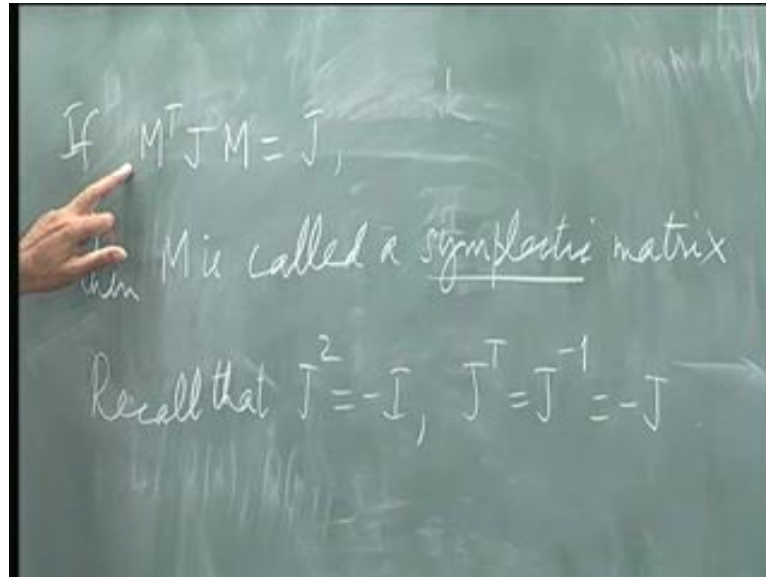 If Mᵀ J M = J,
then M is called a symplectic matrix
Recall that J² = -I, Jᵀ = J⁻¹ = -J